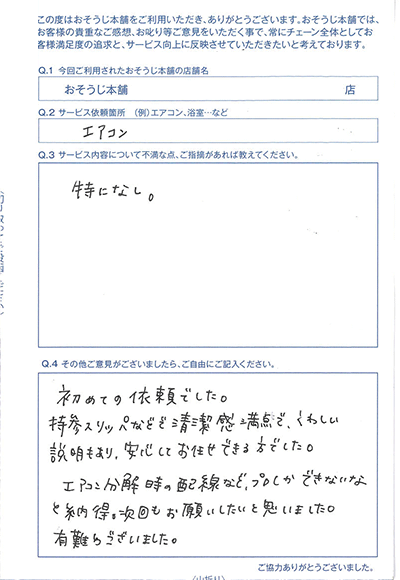 この度はおそうじ本舗をご利用いただき、ありがとうございます。おそうじ本舗では、
お客様の貴重なご感想、お叱り等ご意見をいただく事で、常にチェーン全体としてお
客様満足度の追求と、サービス向上に反映させていただきたいと考えております。
Q.1 今回ご利用されたおそうじ本舗の店舗名
おそうじ本舗 店
Q.2 サービス依頼箇所 （例）エアコン、浴室…など
エアコン
Q.3 サービス内容について不満な点、ご指摘があれば教えてください。
特になし。
Q.4 その他ご意見がございましたら、ご自由にご記入ください。
初めての依頼でした。
持参スリッパなどで清潔感満点で、くわしい
説明もあり、安心してお任せできる方でした。
エアコン分解時の配線など、プロしかできないな
と納得。次回もお願いしたいと思いました。
有難うございました。
ご協力ありがとうございました。